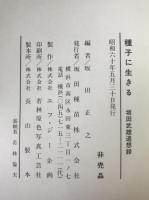 種子に生きる
坂田武雄追想録
昭和六十年五月三十日発行
非売品
編者 坂田正之
発行者 坂田種苗株式会社
横浜市南区永田東三丁目一ノ七
電話 横浜(〇四五)七一五‐二一一一(代)
製作 株式会社 エフ・ジー企画
印刷所 株式会社 若林原色写真工芸社
製本所 株式会社 長山製本